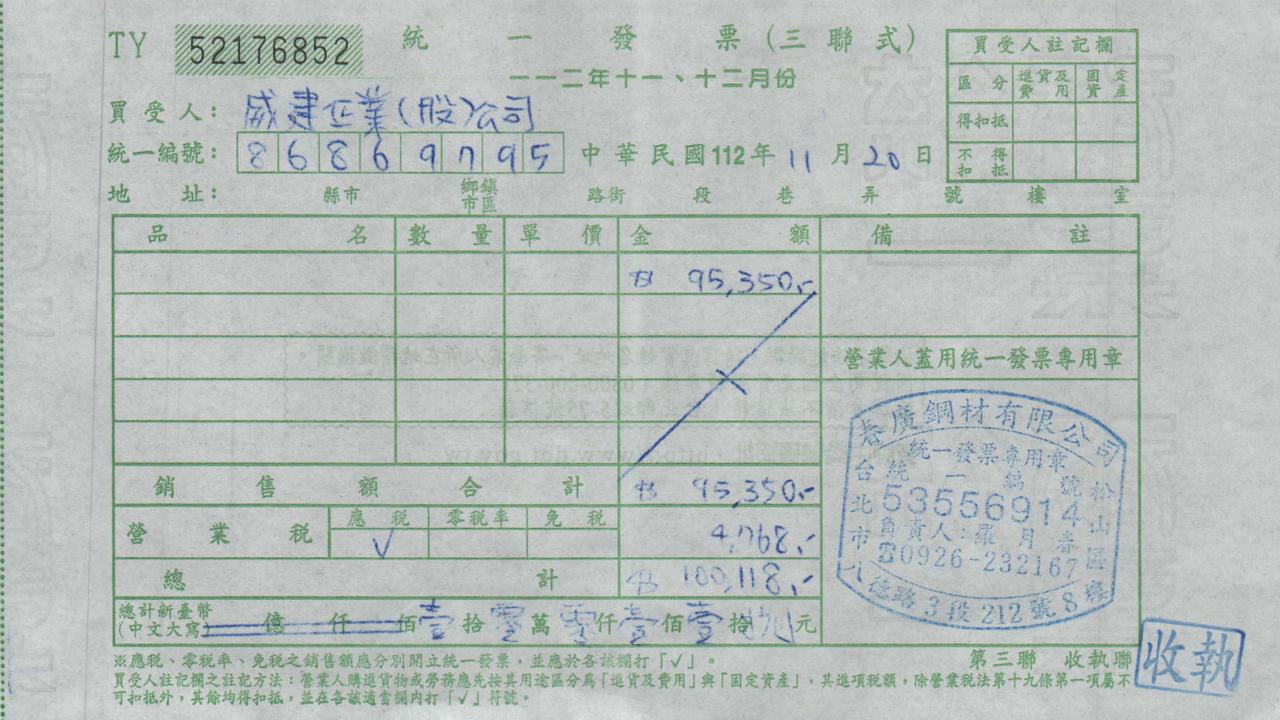 TY 52176852 統一發票(三聯式)
一一二年十一、十二月份
買受人註記欄
區分 進貨及費用 固定資產
得扣抵
不得扣抵
買受人: 威建企業(股)公司
統一編號: 86869795 中華民國112年11月20日
地址: 縣市 鄉鎮市區 路街 段 巷 弄 號 樓 室
品名 數量 單價 金額 備註
95,350.-
營業人蓋用統一發票專用章
銷售額合計 95,350.-
營業稅 應稅 √ 零稅率 免稅 4,768.-
總計 100,118.-
總計新臺幣(中文大寫) 億 仟 佰壹拾零萬零仟壹佰壹拾捌元
泰廣鋼材有限公司
統一發票專用章
統一編號
53556914
負責人:羅月春
☎0926-232167
台北市松山區
八德路3段212號8樓
※應稅、零稅率、免稅之銷售額應分別開立統一發票,並應於各該欄打「√」。
第三聯 收執聯
收執
買受人註記欄之註記方法:營業人購進貨物或勞務應先按其用途區分為「進貨及費用」與「固定資產」,其進項稅額,除營業稅法第十九條第一項屬不
可扣抵外,其餘均得扣抵,並在各該適當欄內打「√」符號。